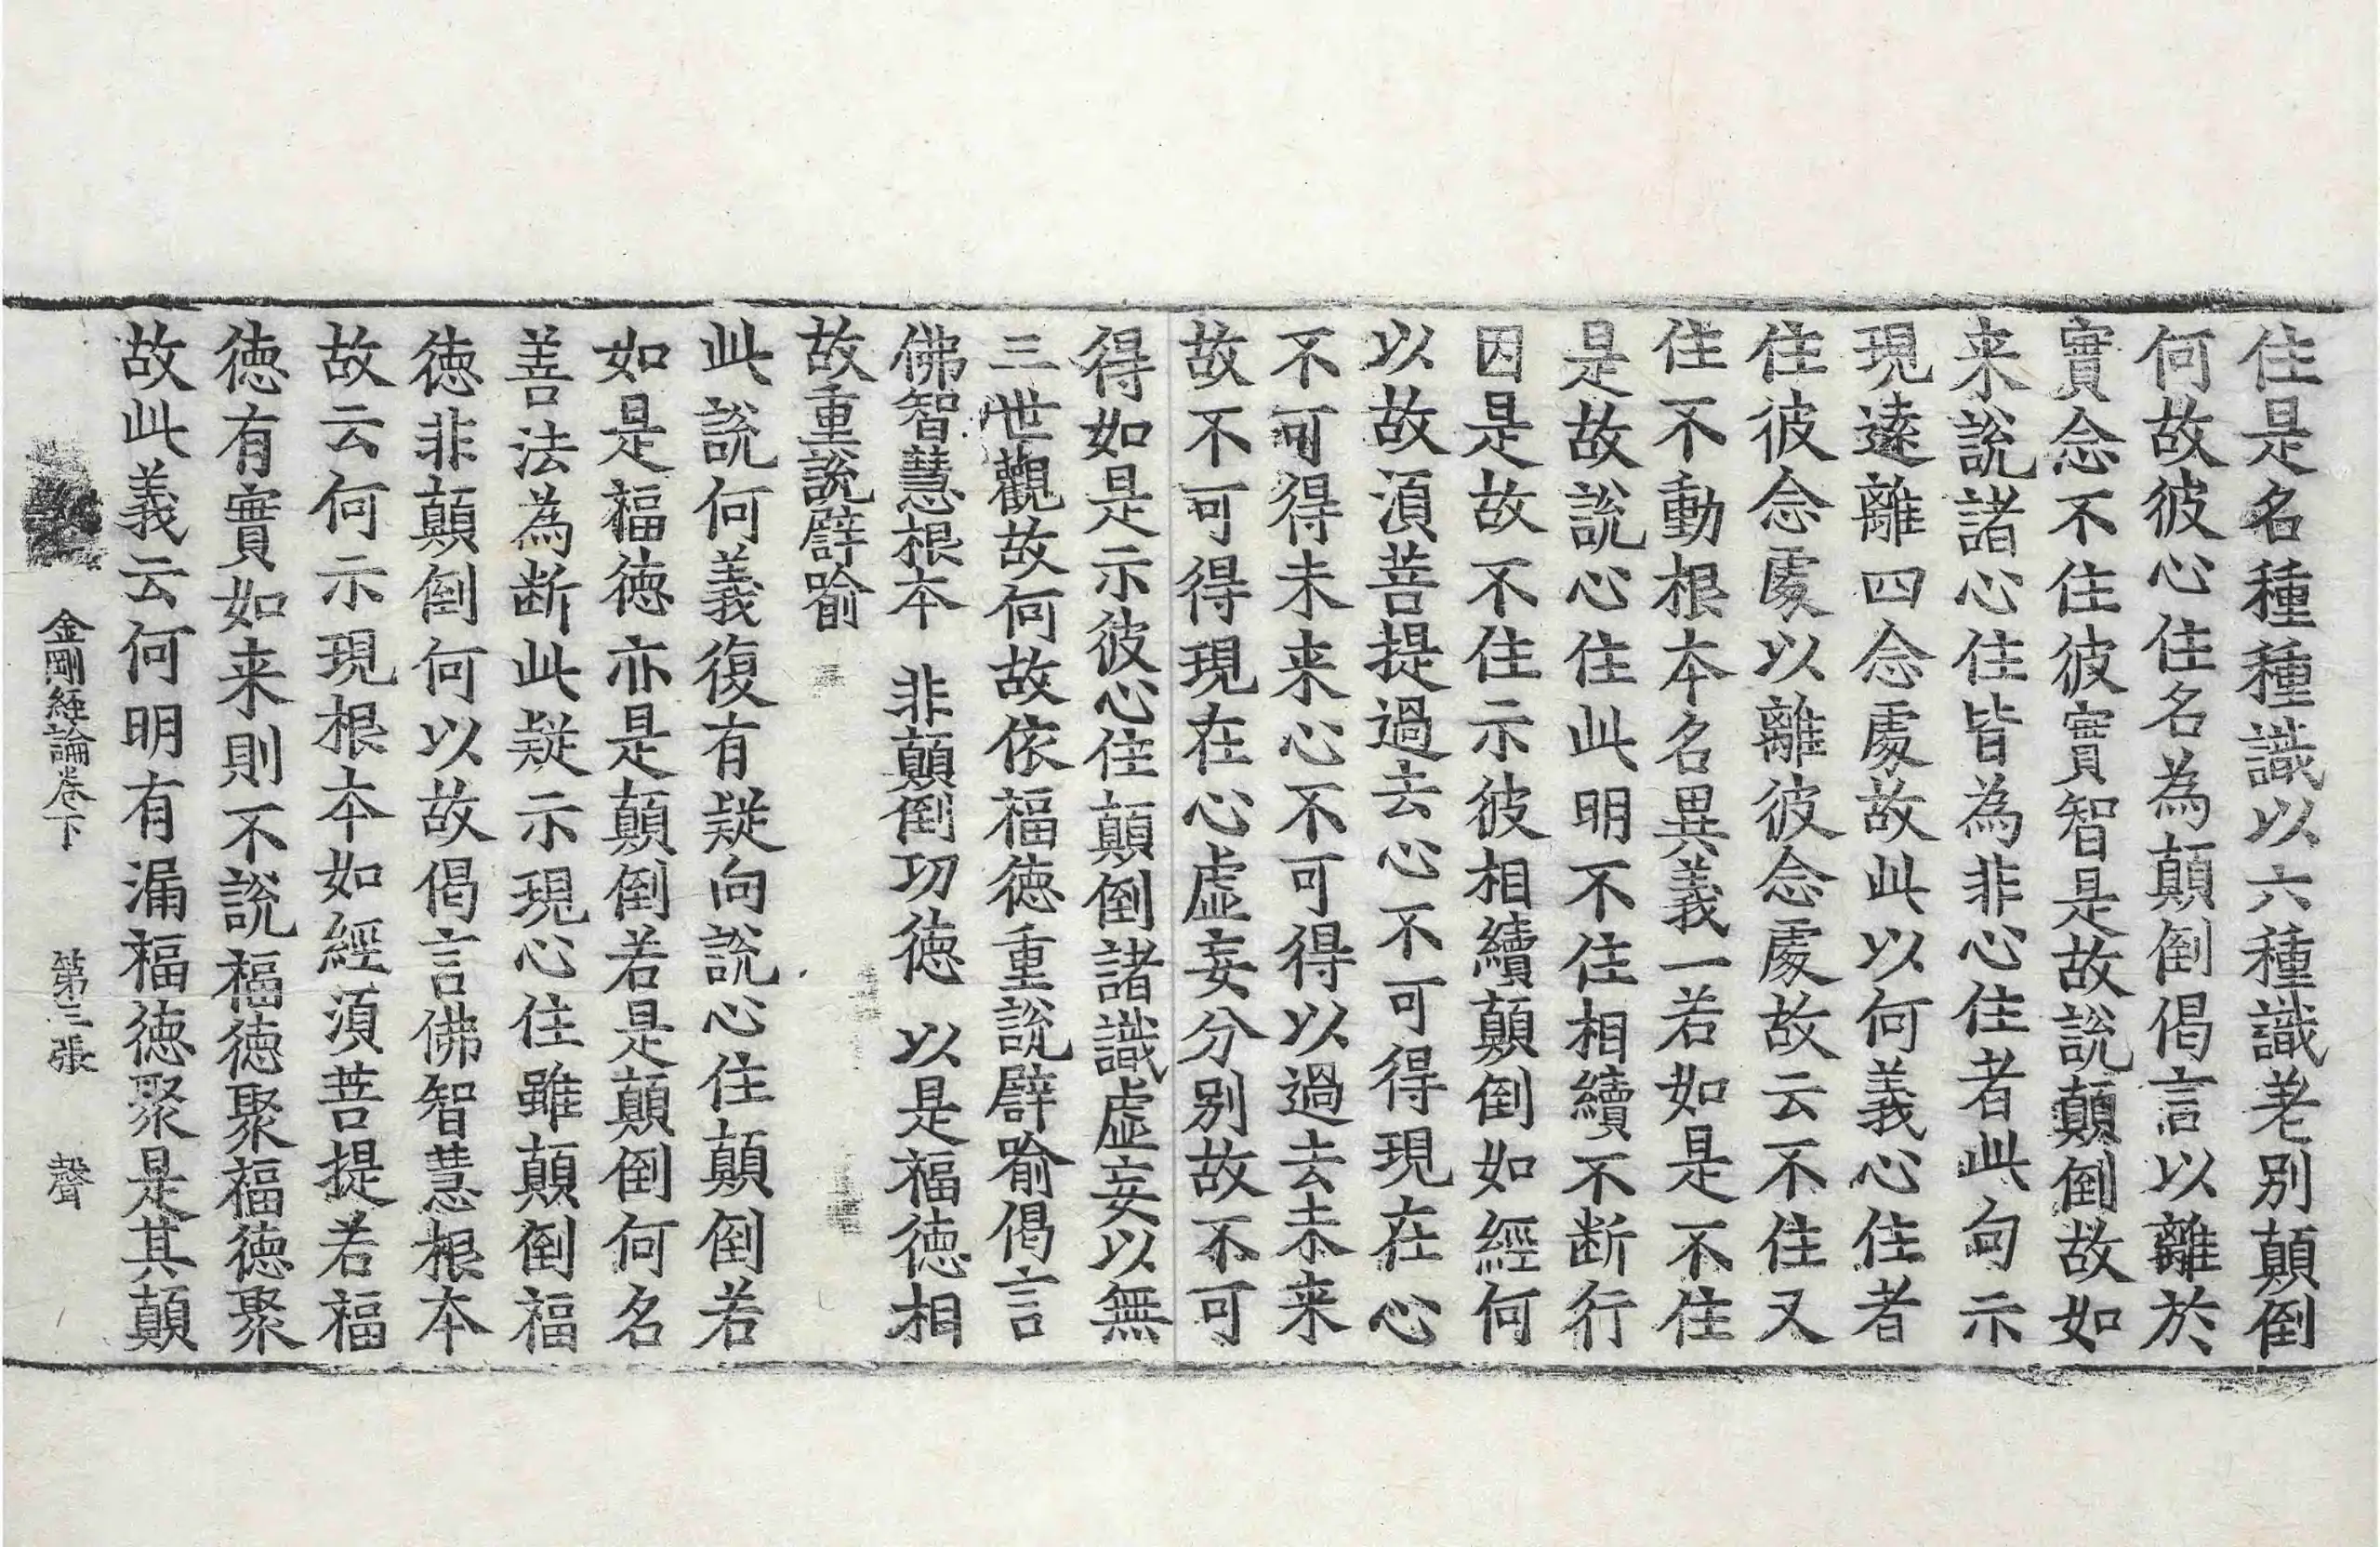 住是名種種識以六種識老別顛倒
何故彼心住名為顛倒偈言以離於
實念不住彼實智是故說顛倒故如
来說諸心住皆為非心住者此句示
現逺離四念處故此以何義心住者
住彼念處以離彼念處故云不住又
住不動根本名異義一若如是不住
是故說心住此明不住相續不断行
因是故不住示彼相續顛倒如經何
以故湏菩提過去心不可得現在心
不可得未来心不可得以過去未来
故不可得現在心虛妄分別故不可
得如是示彼心住顛倒諸識虛妄以無
三世觀故何故依福徳重說譬喻偈言
佛智慧根本 非顛倒功徳 以是福徳相
故重說譬喻
此說何義復有疑向說心住顛倒若
如是福徳亦是顛倒若是顛倒何名
善法為断此疑示現心住雖顛倒福
徳非顛倒何以故偈言佛智慧根本
故云何示現根本如經湏菩提若福
徳有實如来則不說福徳聚福徳聚
故此義云何明有漏福徳聚是其顛
金剛經論卷下 第三張 聲